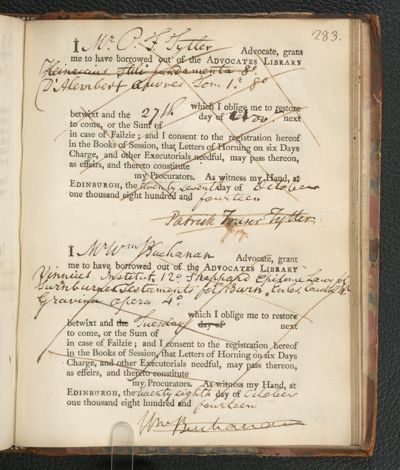 283.
I Mr P. F. Tytler Advocate, grant
me to have borrowed out of the ADVOCATES LIBRARY
Heineccius Stili fundamenta 8o.
D'Alembert œuvres Tom. 1r. 8o
which I oblige me to restore
betwixt and the 27th day of Nov. next
to come, or the Sum of
in case of Failzie; and I consent to the registration hereof
in the Books of Session, that Letters of Horning on six Days
Charge, and other Executorials needful, may pass thereon,
as effeirs, and thereto constitute
my Procurators. As witness my Hand, at
EDINBURGH, the twenty seventh day of October
one thousand eight hundred and fourteen
Patrick Fraser Tytler.
I Mr Wm Buchanan Advocate, grant
me to have borrowed out of the ADVOCATES LIBRARY
Vinnius Institut. 12o Sheppard Epitome Laws fol
Swinburne Testaments fol Burn Eccles. Law
Gravina opera 4o.
which I oblige me to restore
betwixt and the Tuesday day of next
to come, or the Sum of
in case of Failzie; and I consent to the registration hereof
in the Books of Session, that Letters of Horning on six Days
Charge, and other Executorials needful, may pass thereon,
as effeirs, and thereto constitute
my Procurators. As witness my Hand, at
EDINBURGH, the twenty eighth day of October
one thousand eight hundred and fourteen
Wm Buchanan